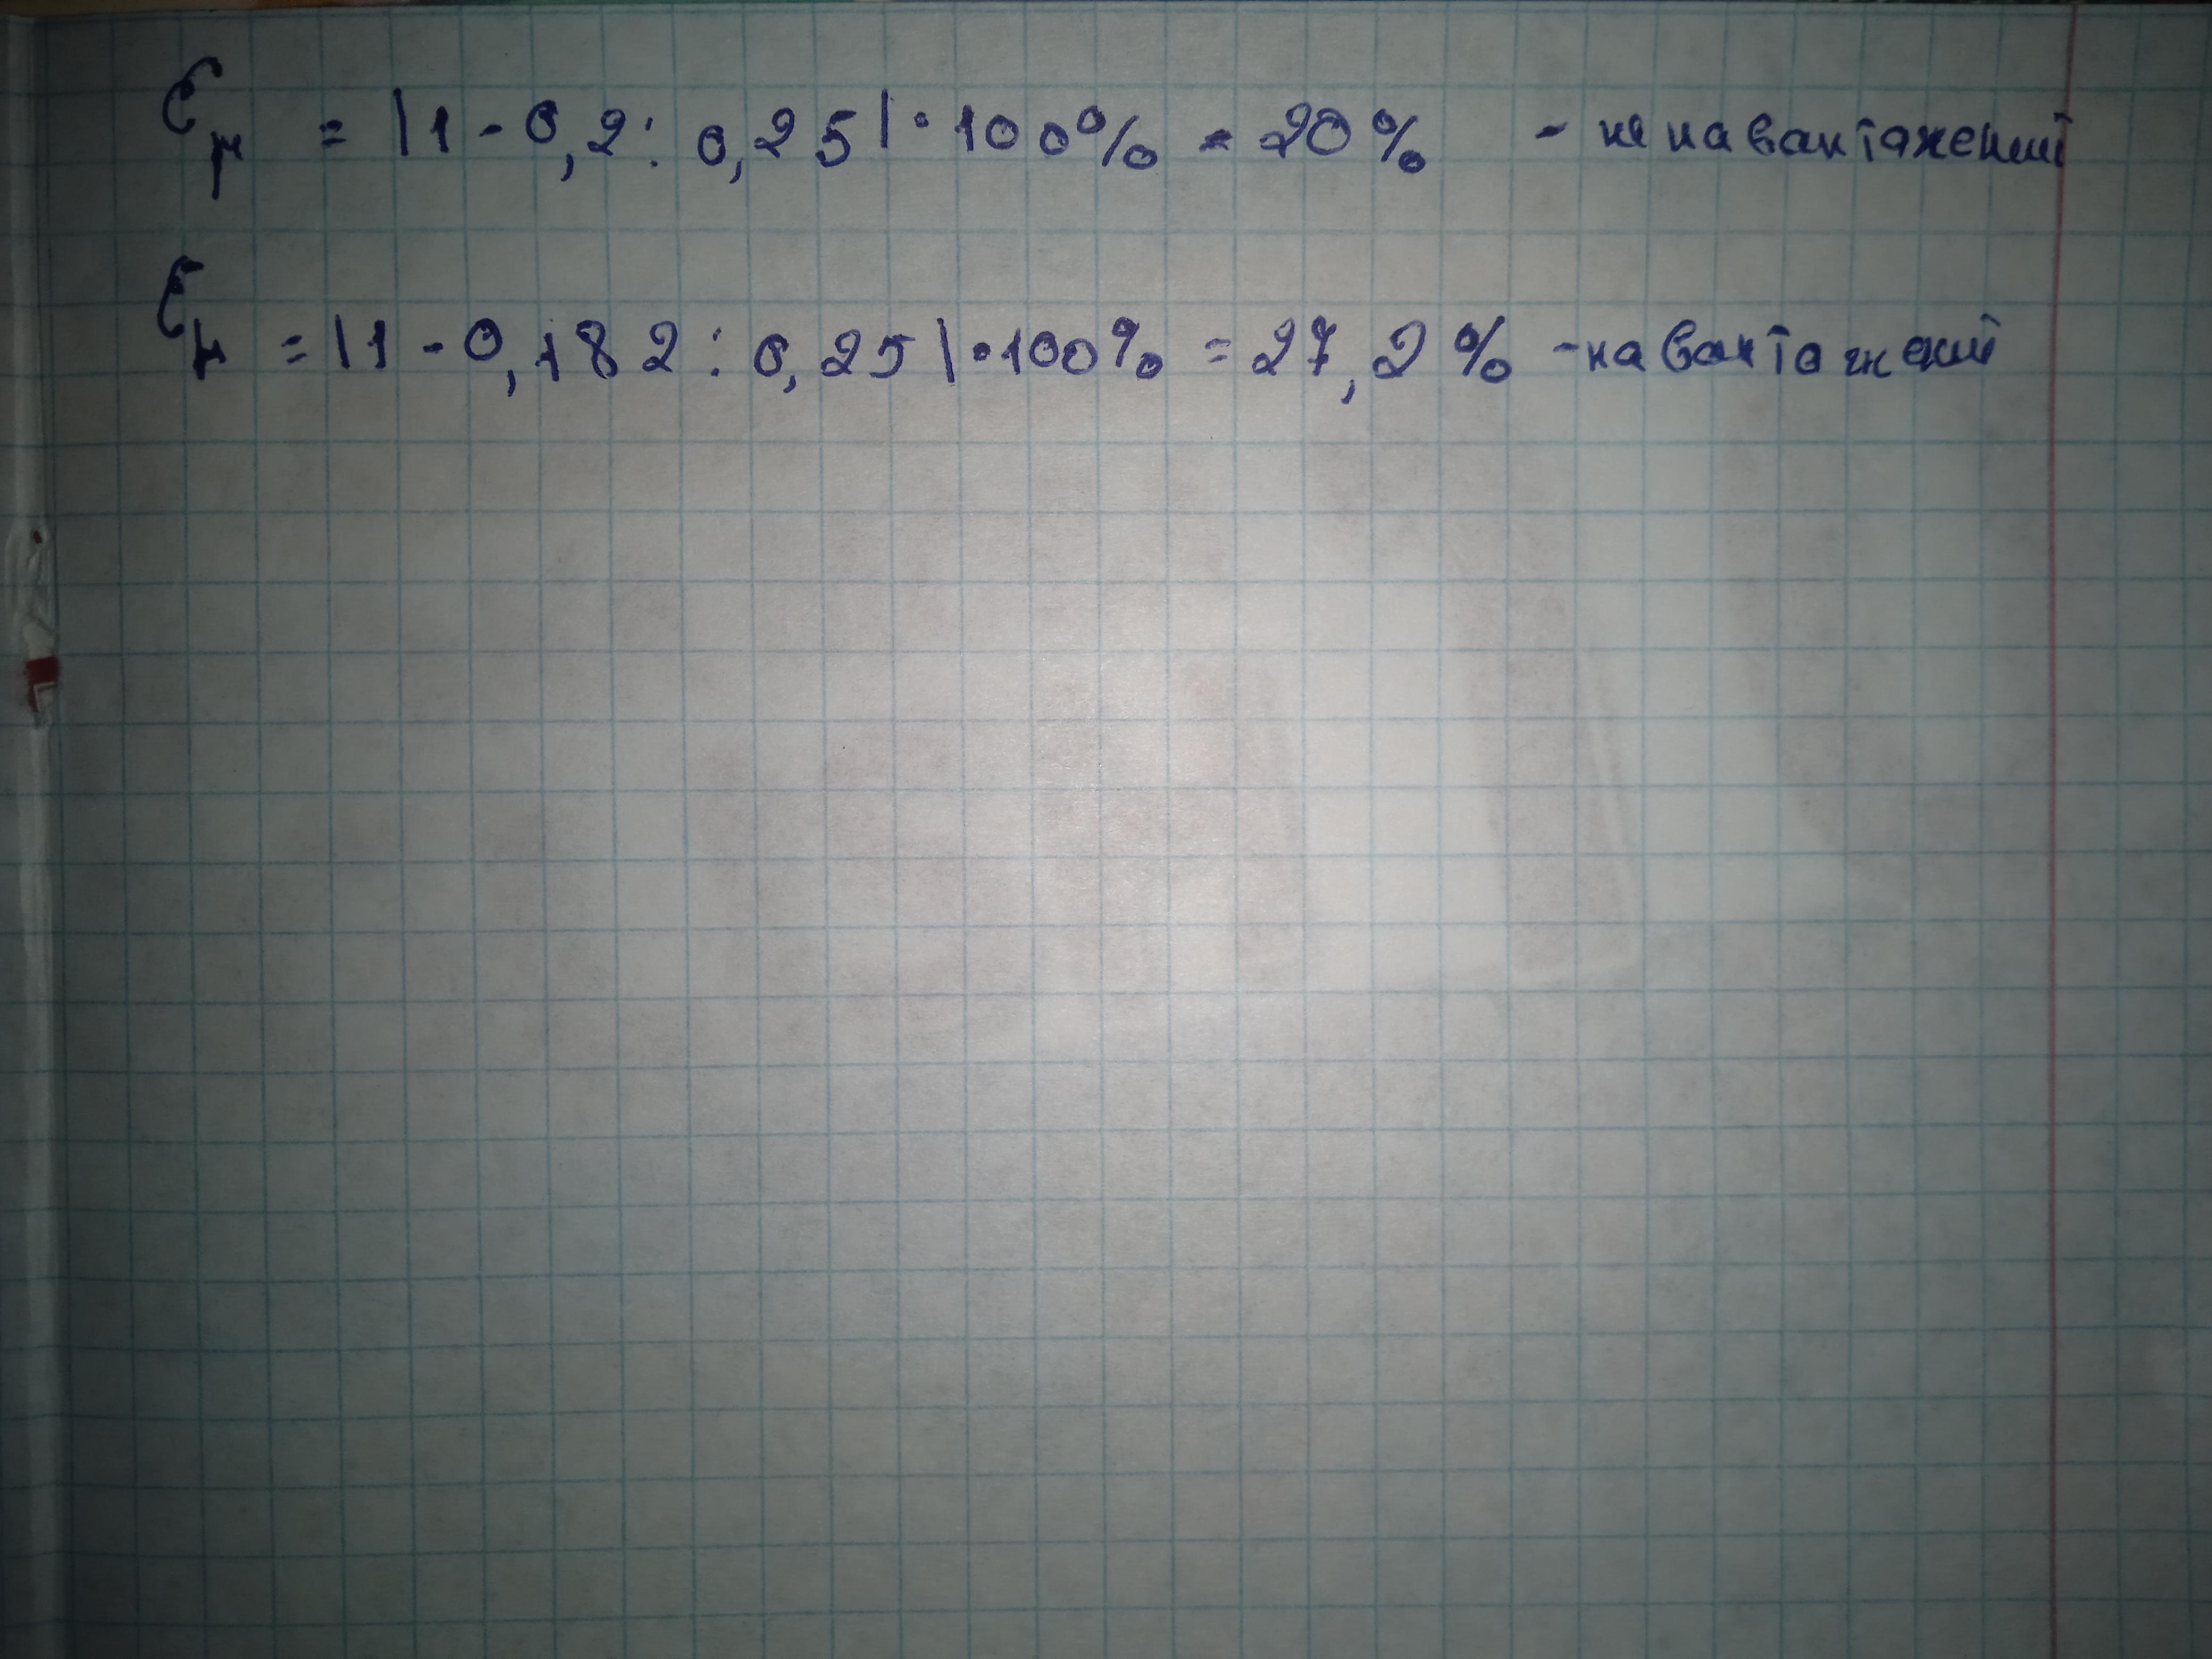 εμ = |1 - 0,2 : 0,25| · 100% = 20% - не навантажений
εμ = |1 - 0,182 : 0,25| · 100% = 27,2% - навантажений